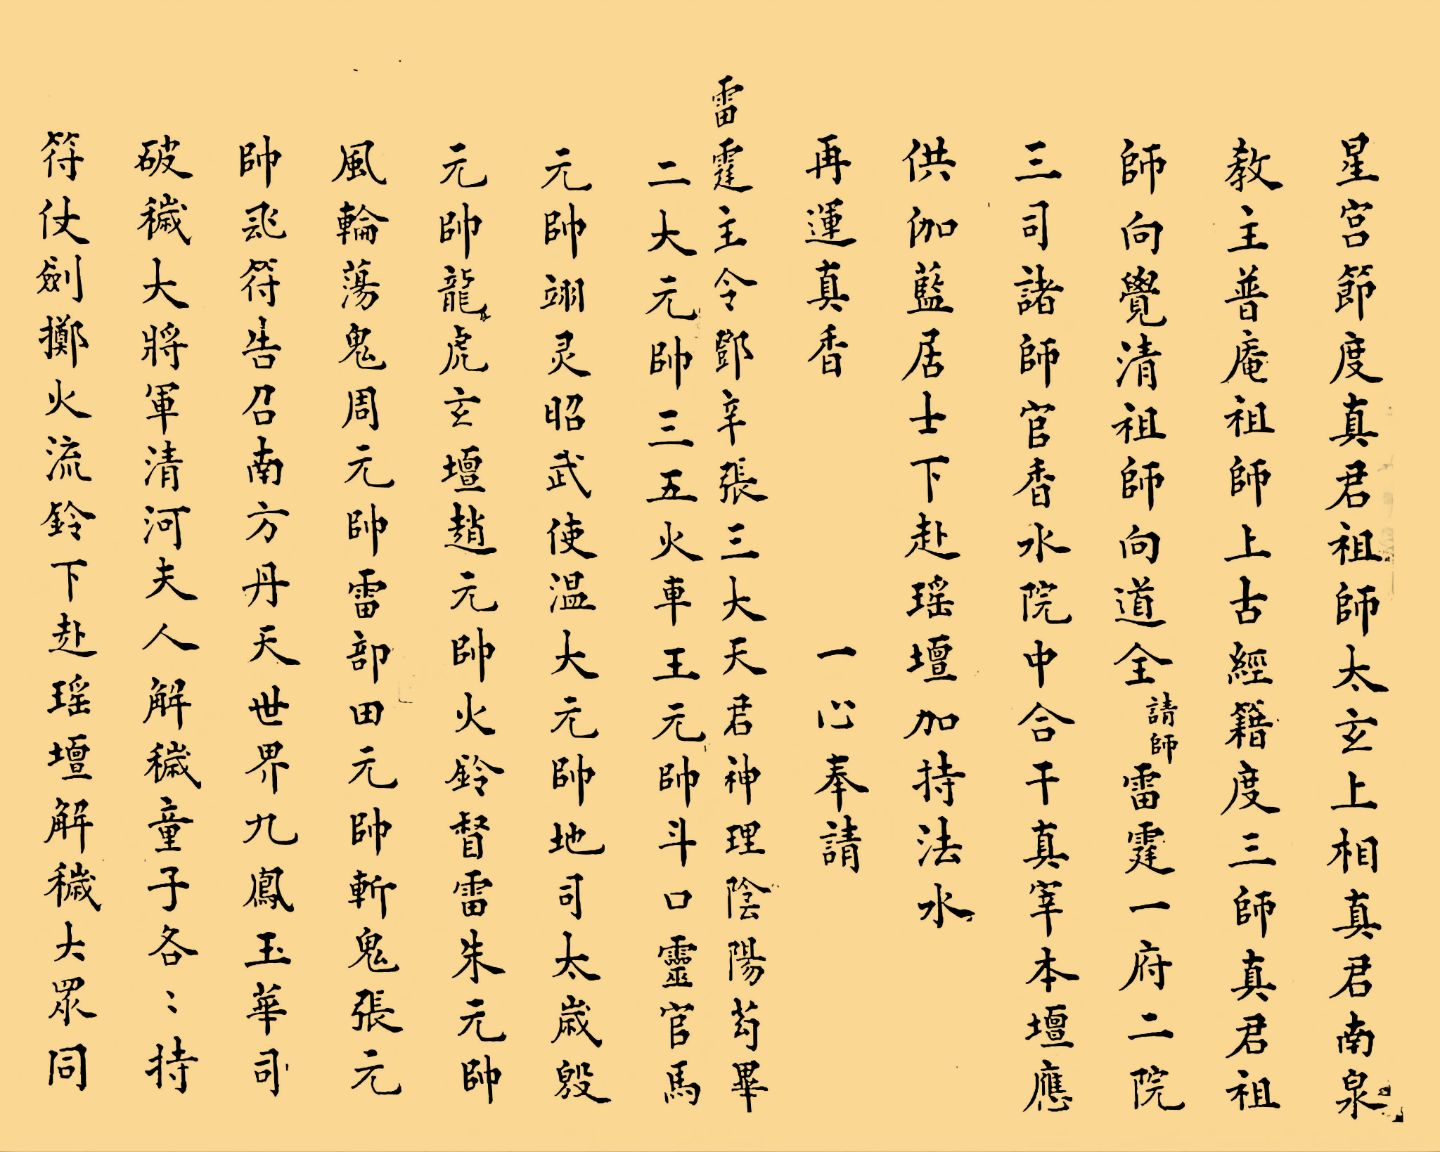 星宮節度真君祖師太玄上相真君南泉
教主普庵祖師上古經籍度三師真君祖
師向覺清祖師向道全請師雷霆一府二院
三司諸師官香水院中合干真宰本壇應
供伽藍居士下赴瑶壇加持法水
再運真香 一心奉請
雷霆主令鄧辛張三大天君神理陰陽苟畢
二大元帥三五火車王元帥斗口靈官馬
元帥翊灵昭武使温大元帥地司太歲殷
元帥龍虎玄壇趙元帥火鈴督雷朱元帥
風輪蕩鬼周元帥雷部田元帥斬鬼張元
帥飛符告召南方丹天世界九鳳玉華司
破穢大將軍清河夫人解穢童子各〻持
符仗劍擲火流鈴下赴瑶壇解穢大眾同